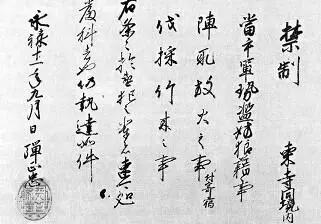 禁制　東寺境内
当手軍勢濫妨狼藉事
陣取放火之事付寄宿
伐採竹木之事
右条々於違犯輩者速可処
厳科者也仍執達如件
永禄十一年九月日　弾正忠